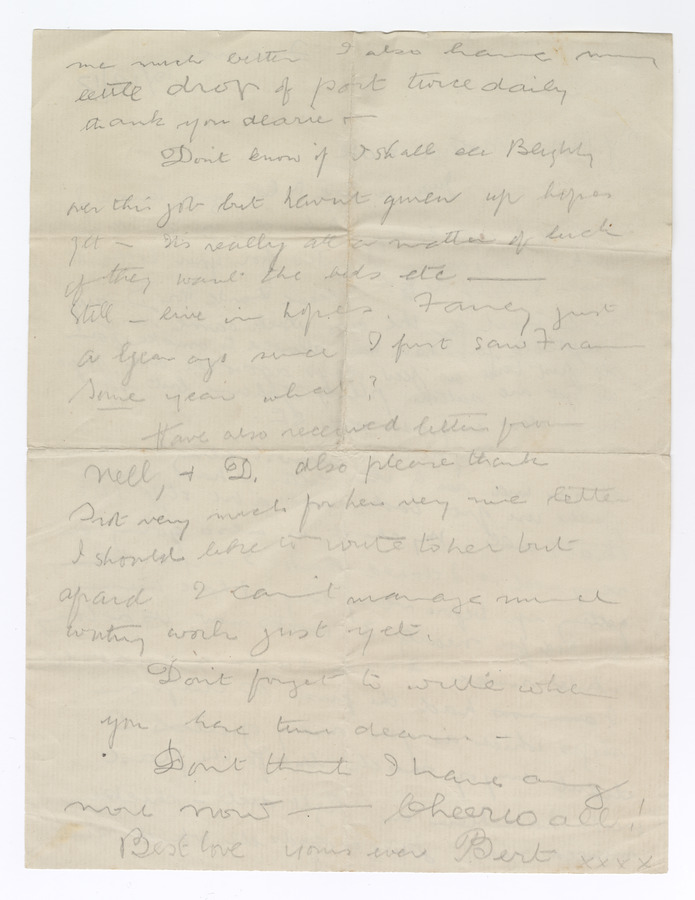 me much better I also have my
little drop of port twice daily
thank you dearie —
Don't know if I shall see Blighty
over this job but havnt given up hopes
yet — its really all a matter of luck
if they want the beds etc —
Still — live in hopes. Fancy just
a year ago since I first saw
Some year what?
Have also received letter from
Nell, + D. also please thank
very much for her very nice letter
I should like to write to her but
afraid I can't manage much
writing work just yet.
Don't forget to write when
you have time dearie —
Don't think I have any
more now — Cheerio all!
Best love yours ever Bert xxxx